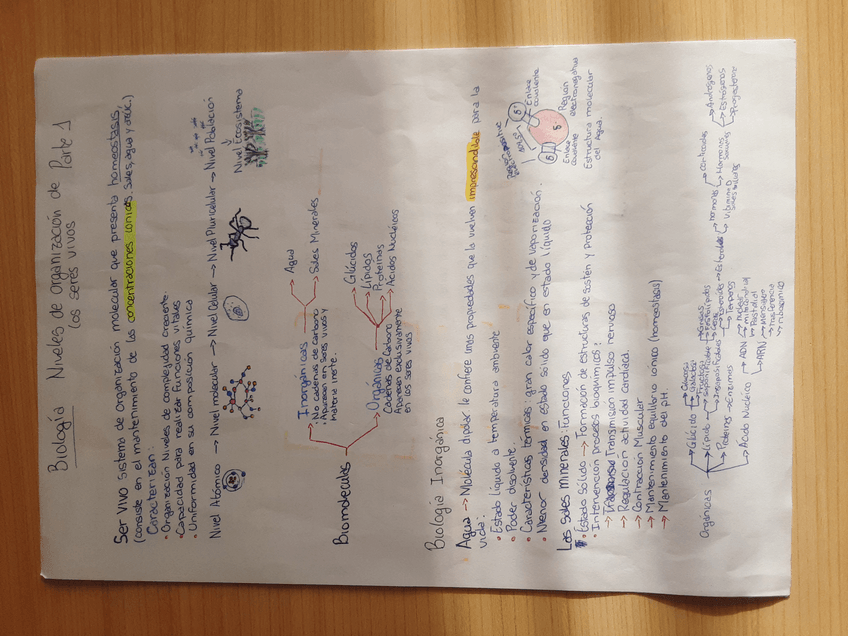 Biología Niveles de organización de Parte 1
los seres vivos
Ser Vivo Sistema de Organización molecular que presenta homeostasis,
(consiste en el mantenimiento de las concentraciones iónicas. Sales, agua y
Caracterizan:
• Organización Niveles de complejidad creciente.
• Capacidad para realizar funciones vitales
• Uniformidad en su composición química
Nivel Atómico → Nivel molecular → Nivel Celular → Nivel Pluricelular → Nivel Población
Nivel Ecosistema
Biomoleculas
Inorgánicas
No cadenas de Carbono
• Aparecen en Seres vivos y
Materia inerte.
Agua
Sales Minerales
Orgánicas
Cadenas de Carbono
Aparecen exclusivamente
en los seres vivos
Glúcidos
Lípidos
Proteinas
Acidos Nucleicos
Biología Inorgánica
Agua → Molécula dipolar le confiere unas propiedades que la vuelven impresandible para la
vida:
• Estado líquido a temperatura ambiente
• Poder disolvente.
• Características térmicas: gran calor específico y de vaporización.
• Menor densidad en estado sólido que en estado líquido
Enlace
covalente
Enlace
covalente
Región
electronegativa
Estructura molecular
del Agua.
Las Sales Minerales: Funciones
• Estado Sólido → Formación de estructuras de sostén y Protección
• Intervención procesos bioquímicos:
→ Transmisión impulso nervioso
→ Regulación actividad cardíaca.
→ Contracción Muscular
→ Mantenimiento equilibrio iónico (homeostasis)
→ Mantenimiento del pH.
Orgánicas
Glúcido
Lípido
Proteínas → Enzimas
Ácido Nucleico
Saponificable
Insaponificables
Ceras
Fosfolípidos
Esteroides
Terpenos
Esteroles
Hormonas
Vitamina D
Sales biliares
Corticoides
Hormonas
Sexuales
Andrógenos
Estrógenos
ADN
Nuclear
mitocondrial
ARN
Mensajero
Trasferencia